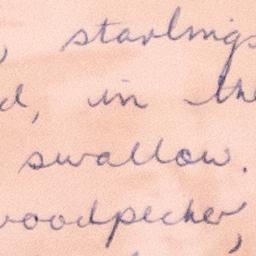 , starlings
d, in the
swallow.
woodpecker,